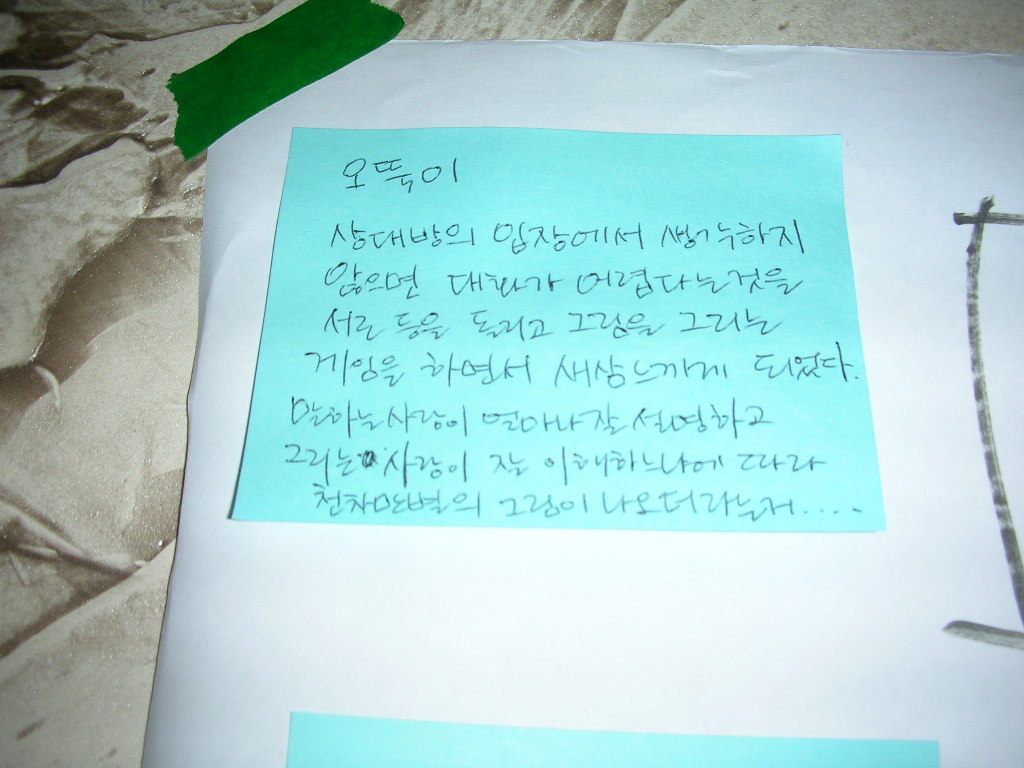 오뚝이
상대방의 입장에서 생각하지
않으면 대화가 어렵다는것을
서로 등을 돌리고 그림을 그리는
게임을 하면서 새삼느끼게 되었다.
말하는사람이 얼마나잘 설명하고
그리는 사람이 잘 이해하느냐에 따라
천차만별의 그림이 나오더라는거....